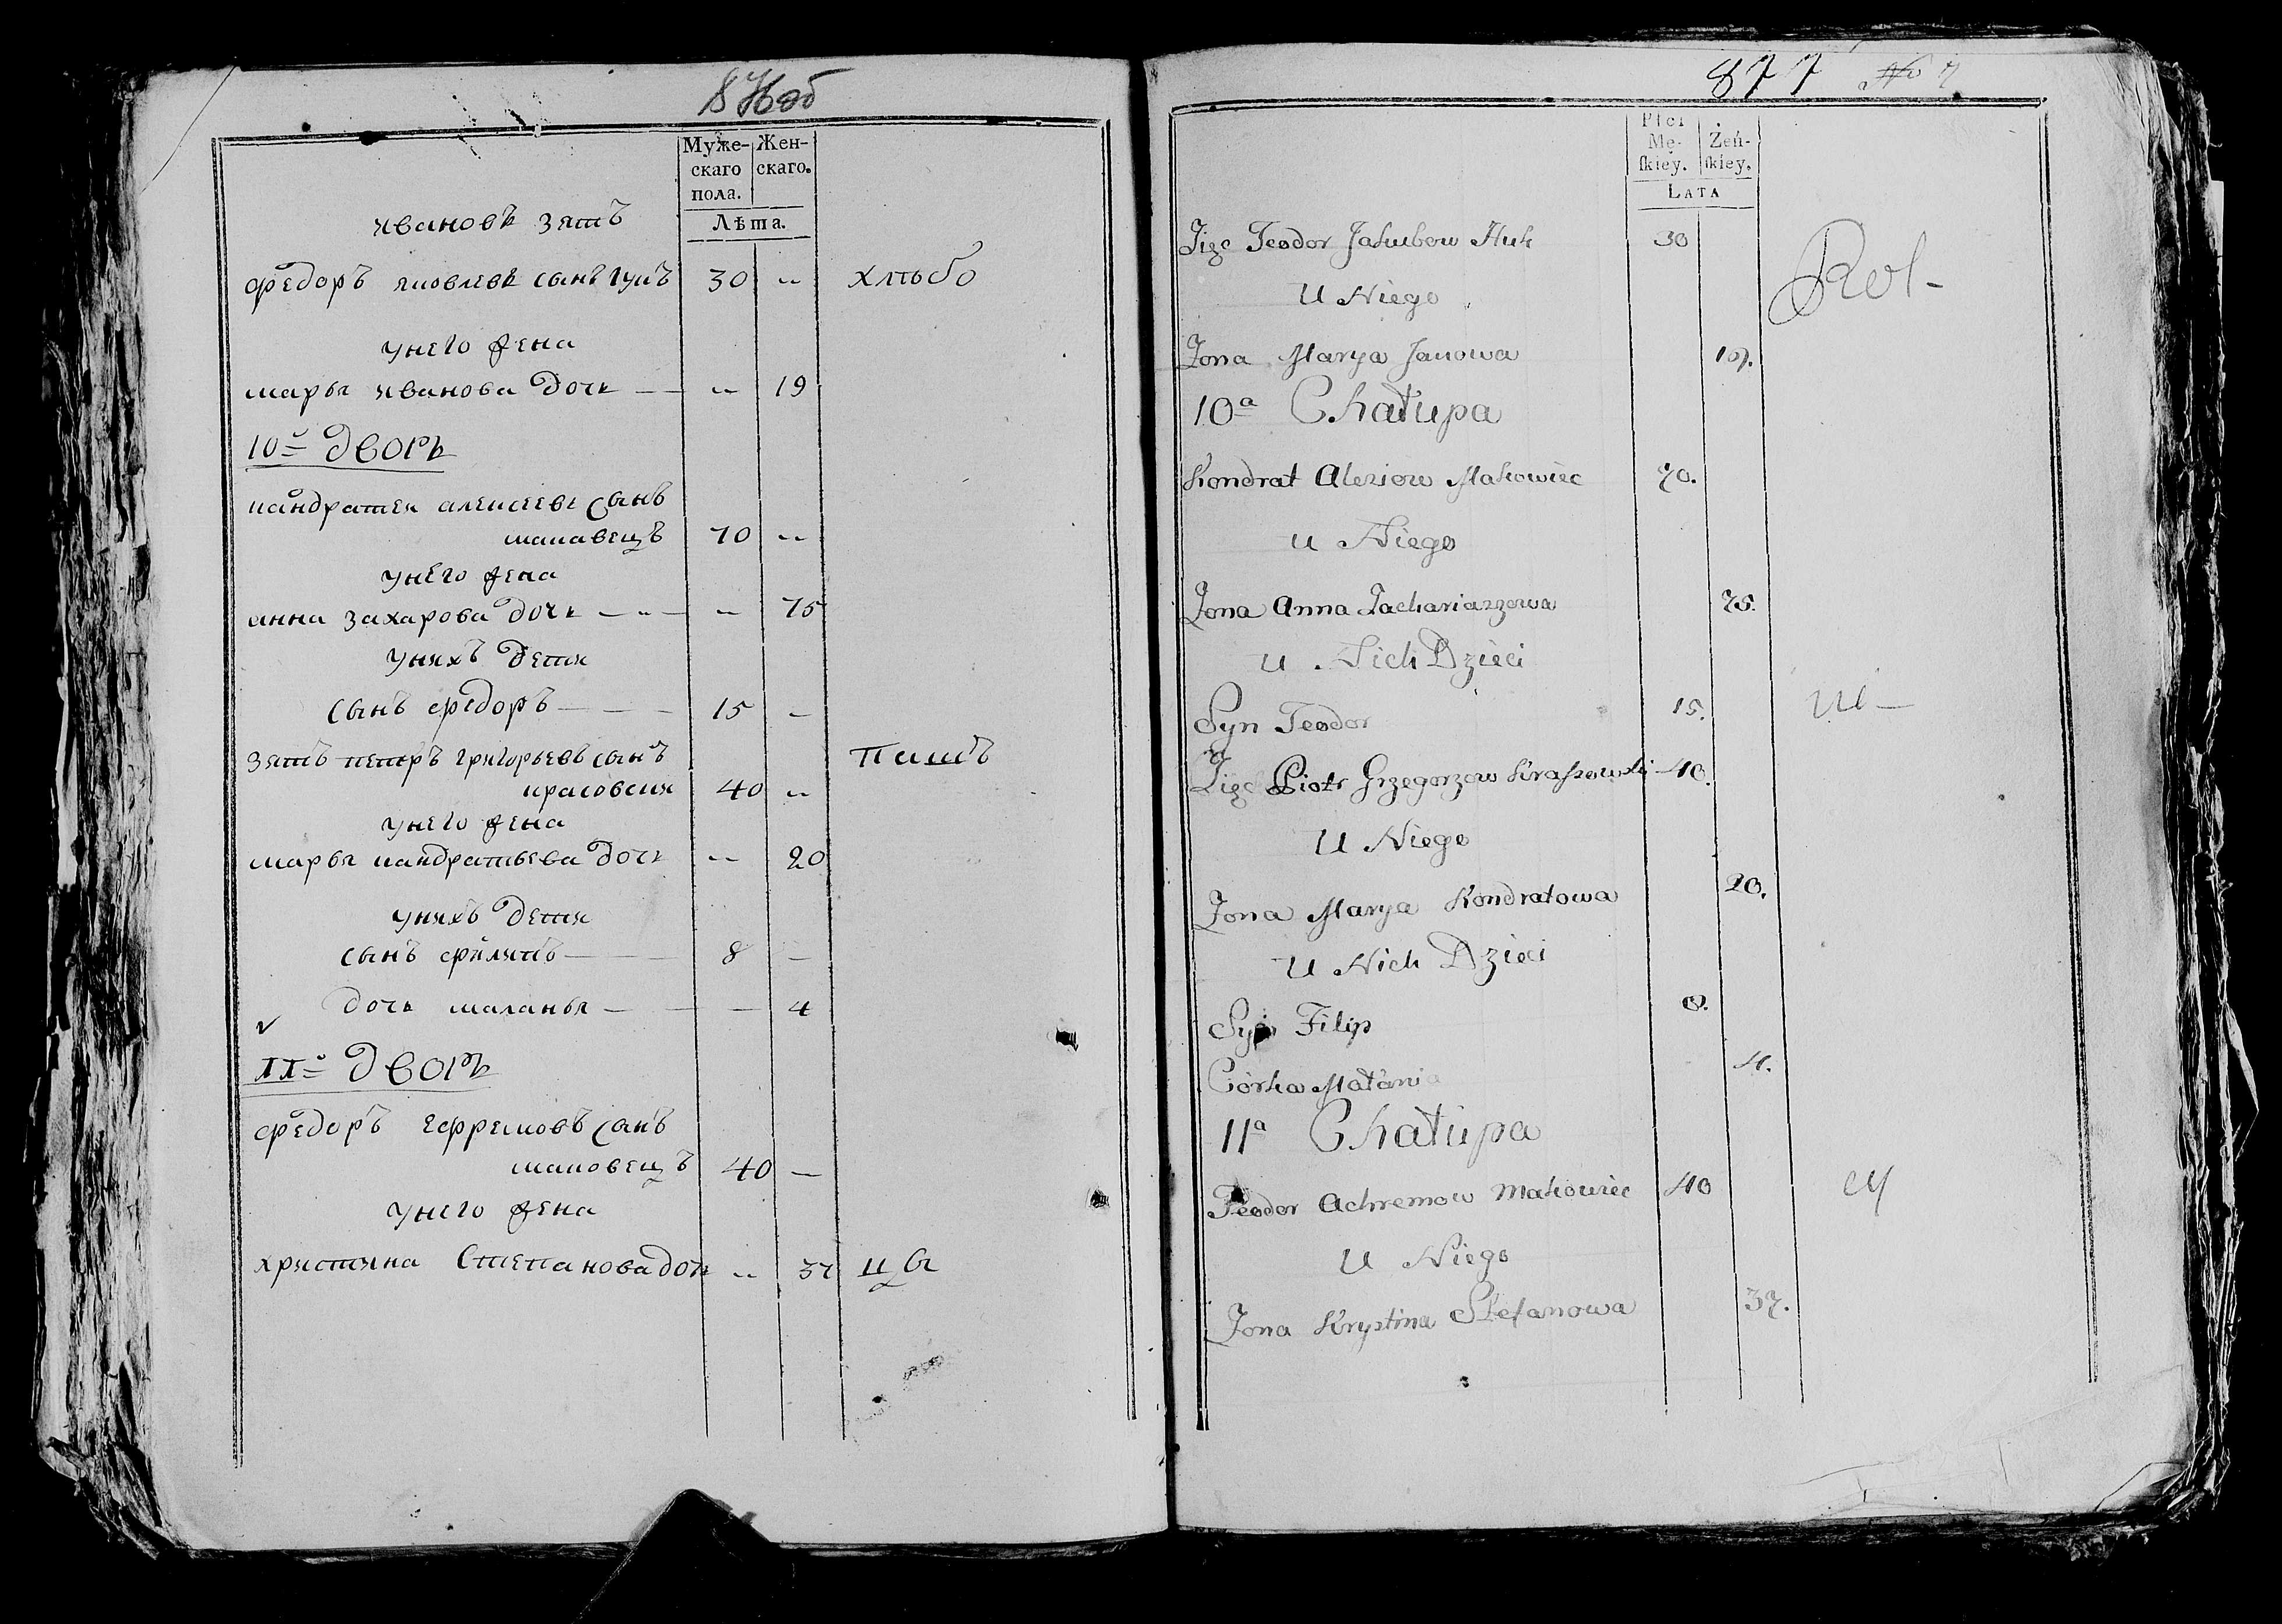 876об
Муже-
скаго
пола.
Жен-
скаго.
Лѣта.
ивановъ зять
федоръ яковлевъ сынъ гукъ 30 „ хлѣбо
у него жена
марья иванова дочь — „ 19
10й дворъ
кандратей алексеевъ сынъ
макавецъ 70 „
у него жена
анна захарова дочь — „ — „ 75
у нихъ дети
сынъ федоръ — — — 15 —
зять петръ григорьевъ сынъ пашъ
красовски 40 „
у него жена
марья кандратьева дочь „ 20
у нихъ дети
сынъ филипъ — — — 8 —
дочь маланья — — — 4
11й дворъ
федоръ ефремовъ сынъ
маковецъ 40 —
у него жена
христина степанова дочь „ 37 цы
877 No 7
Płci
Mę-
skiey.
Żeń-
skiey.
LATA
Zięc Teodor Jakubow Huk 30 Rol-
U Niego
Zona Marya Janowa 19.
10a Chałupa
Kondrat Alexiow Makowiec 70.
U Niego
Zona Anna Zachariaszowa 75.
U Nich Dzieci
Syn Teodor 15. ni-
Zięc Piotr Grzegorzow Kraszowski 40.
U Niego
Zona Marya Kondratowa 20.
U Nich Dzieci
Syn Filip 8.
Córka Małania 4.
11a Chałupa
Teodor Achremow Makowiec 40 cy
U Niego
Zona Krystina Stefanowa 37.